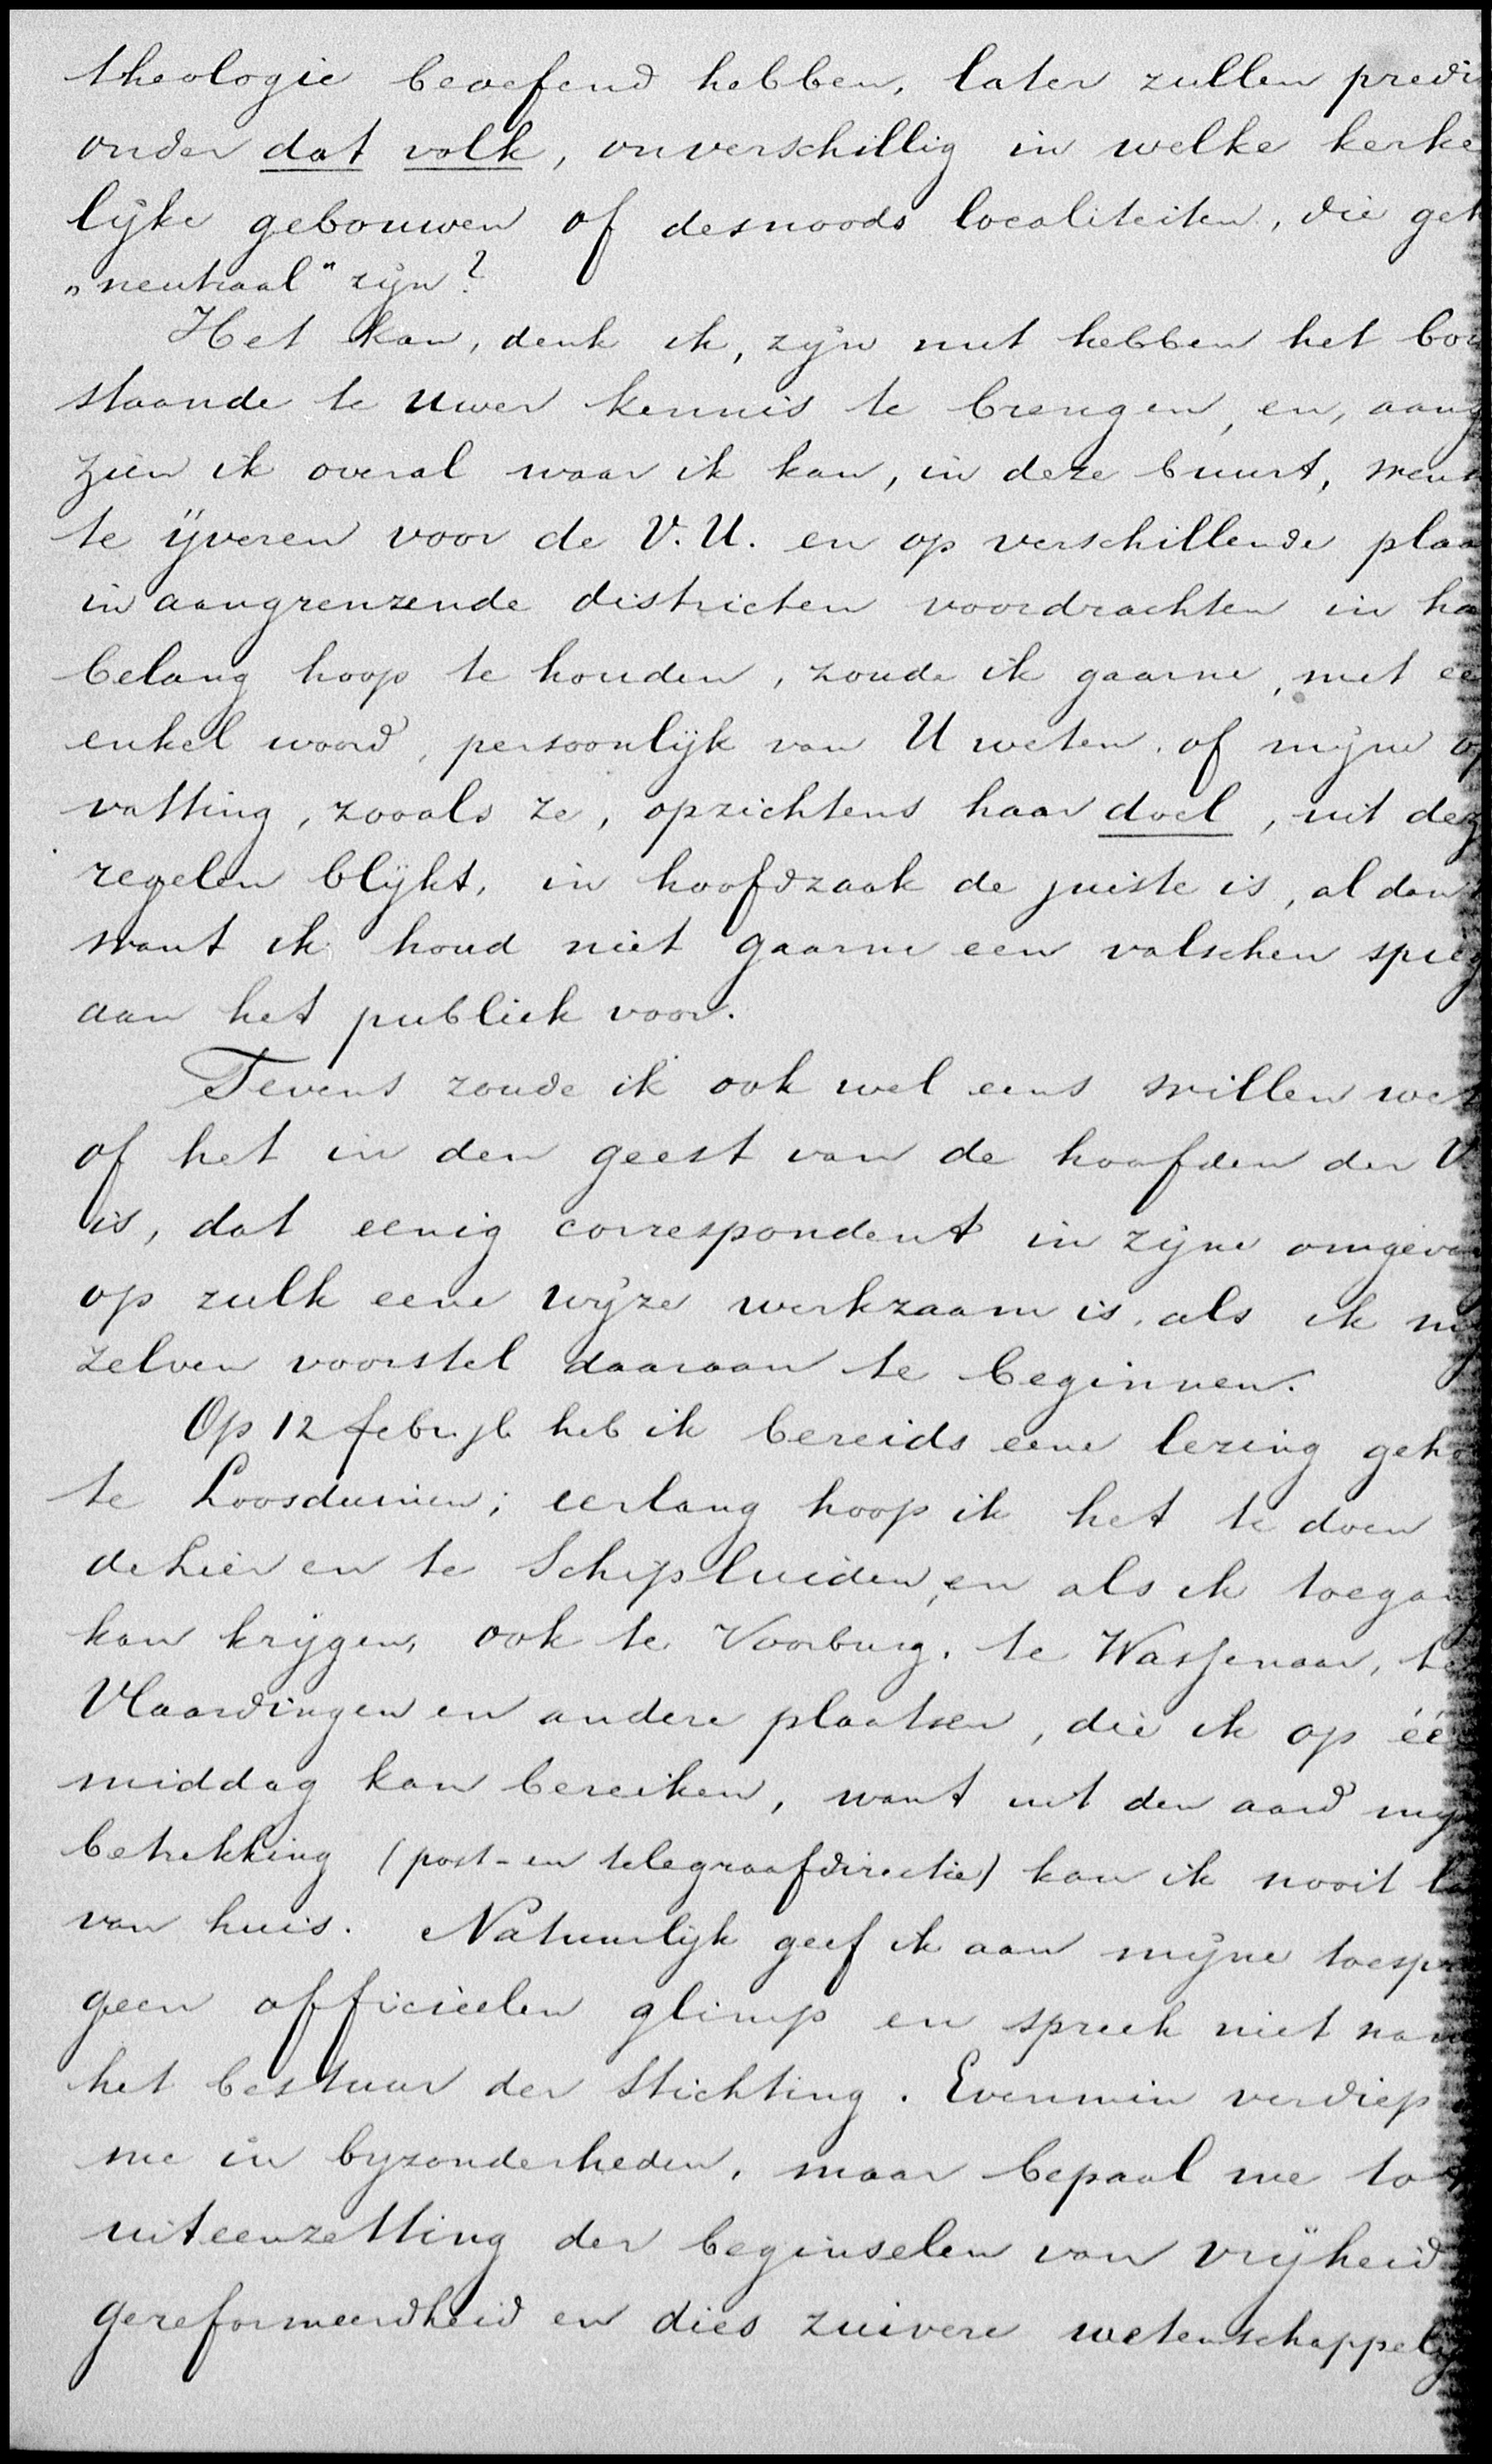 theologie beoefend hebben, later zullen predi
onder dat volk, onverschillig in welke kerke
lijke gebouwen of desnoods localiteiten, die geh
„neutraal" zijn?
Het kan, denk ik, zijn nut hebben het bov
staande te uwer kennis te brengen, en, aang
zien ik overal waar ik kan, in deze buurt, wens
te ijveren voor de V.U. en op verschillende plaa
in aangrenzende districten voordrachten in ha
belang hoop te houden, zoude ik gaarne, met ee
enkel woord, persoonlijk van U weten, of mijne op
vatting, zooals ze, opzichtens haar doel, uit dez
regelen blijkt, in hoofdzaak de juiste is, al dan
want ik houd niet gaarne een valschen spieg
aan het publiek voor.
Tevens zoude ik ook wel eens willen wet
of het in den geest van de hoofden der V
is, dat eenig correspondent in zijne omgev
op zulk eene wijze werkzaam is, als ik mij
zelven voorstel daaraan te beginnen.
Op 12 febr. jl. heb ik bereids eene lezing geho
te Loosduinen; eerlang hoop ik het te doen
de Lier en te Schipluiden, en als ik toegang
kan krijgen, ook te Voorburg, te Wassenaar, te
Vlaardingen en andere plaatsen, die ik op éé
middag kan bereiken, want uit den aard mijn
betrekking (post- en telegraafdirectie) kan ik nooit la
van huis. Natuurlijk geef ik aan mijne toespr
geen officieelen glimp en spreek niet nam
het bestuur der Stichting. Evenmin verdiep
me in byzonderheden, maar bepaal me tot
uiteenzetting der beginselen van vrijheid
gereformeerdheid en dies zuivere wetenschappelij